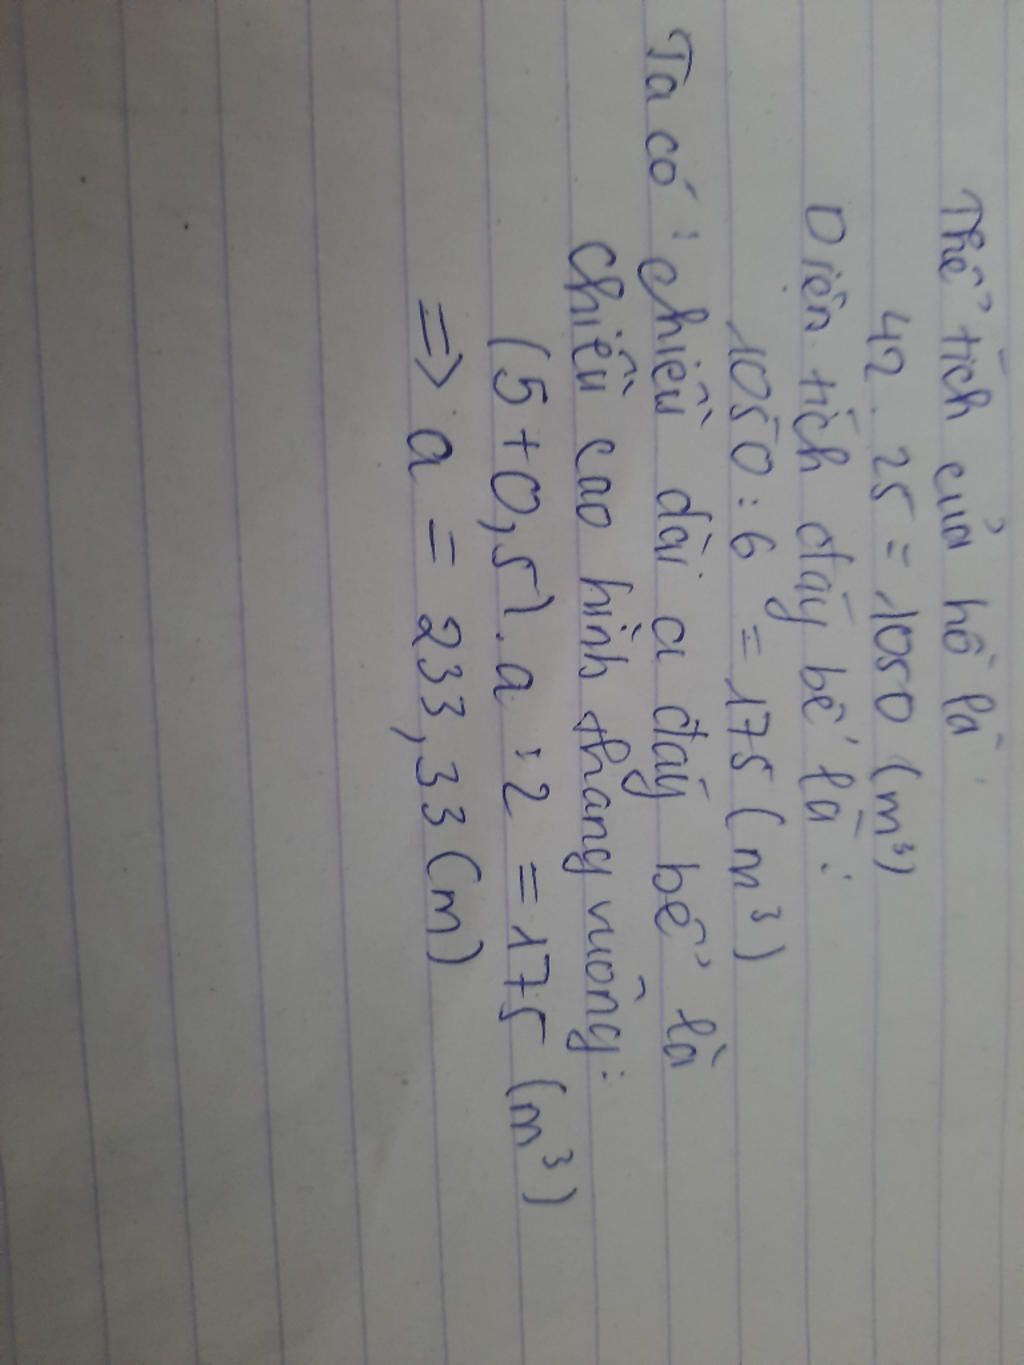 Thể tích của hồ là
42.25 = 1050 (m³)
Diện tích đáy bể là:
1050 : 6 = 175 (m³)
Ta có: chiều dài a đáy bể là
chiều cao hình thang vuông:
(5 + 0,5).a : 2 = 175 (m³)
=> a = 233,33 (m)